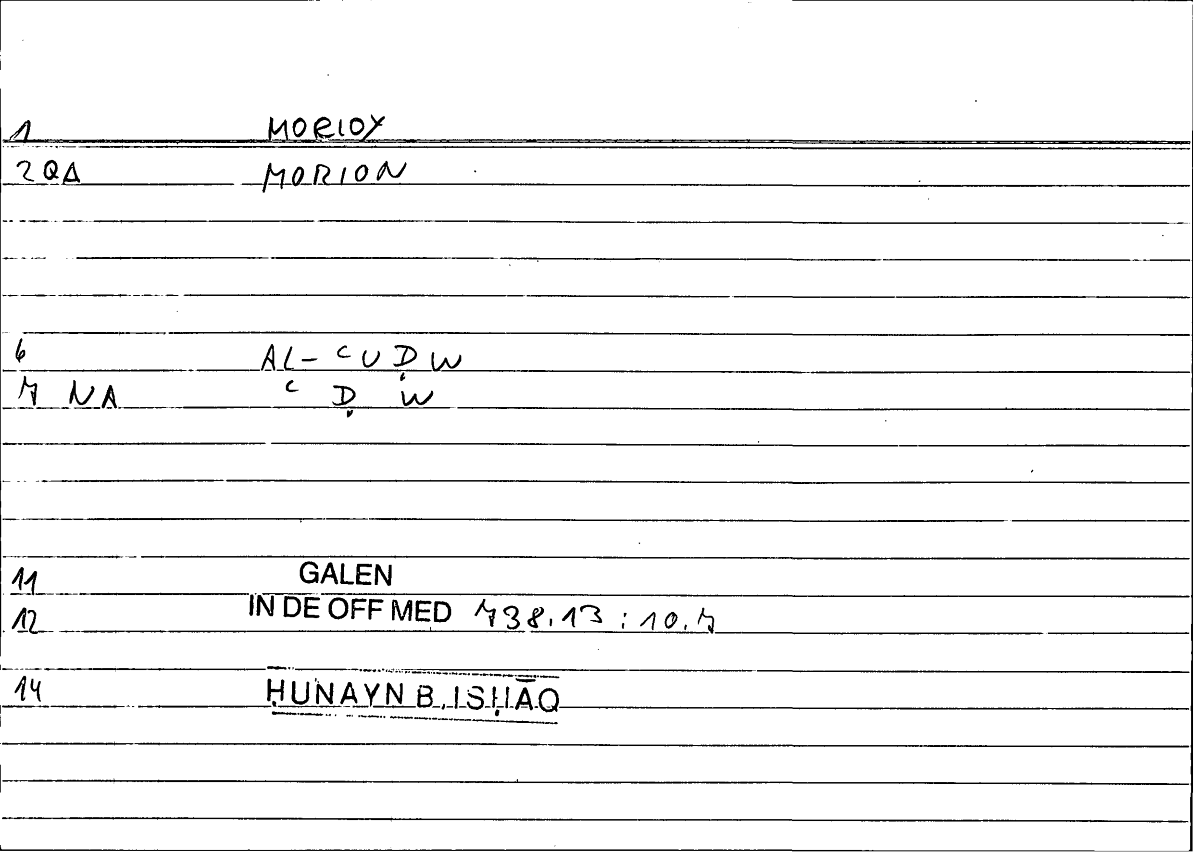 1 MORIOY
2 QA MORION
6 AL-ʿUḌW
7 NA ʿ Ḍ W
11 GALEN
12 IN DE OFF MED 738.13 : 10.7
14 ḤUNAYN B. ISḤĀQ